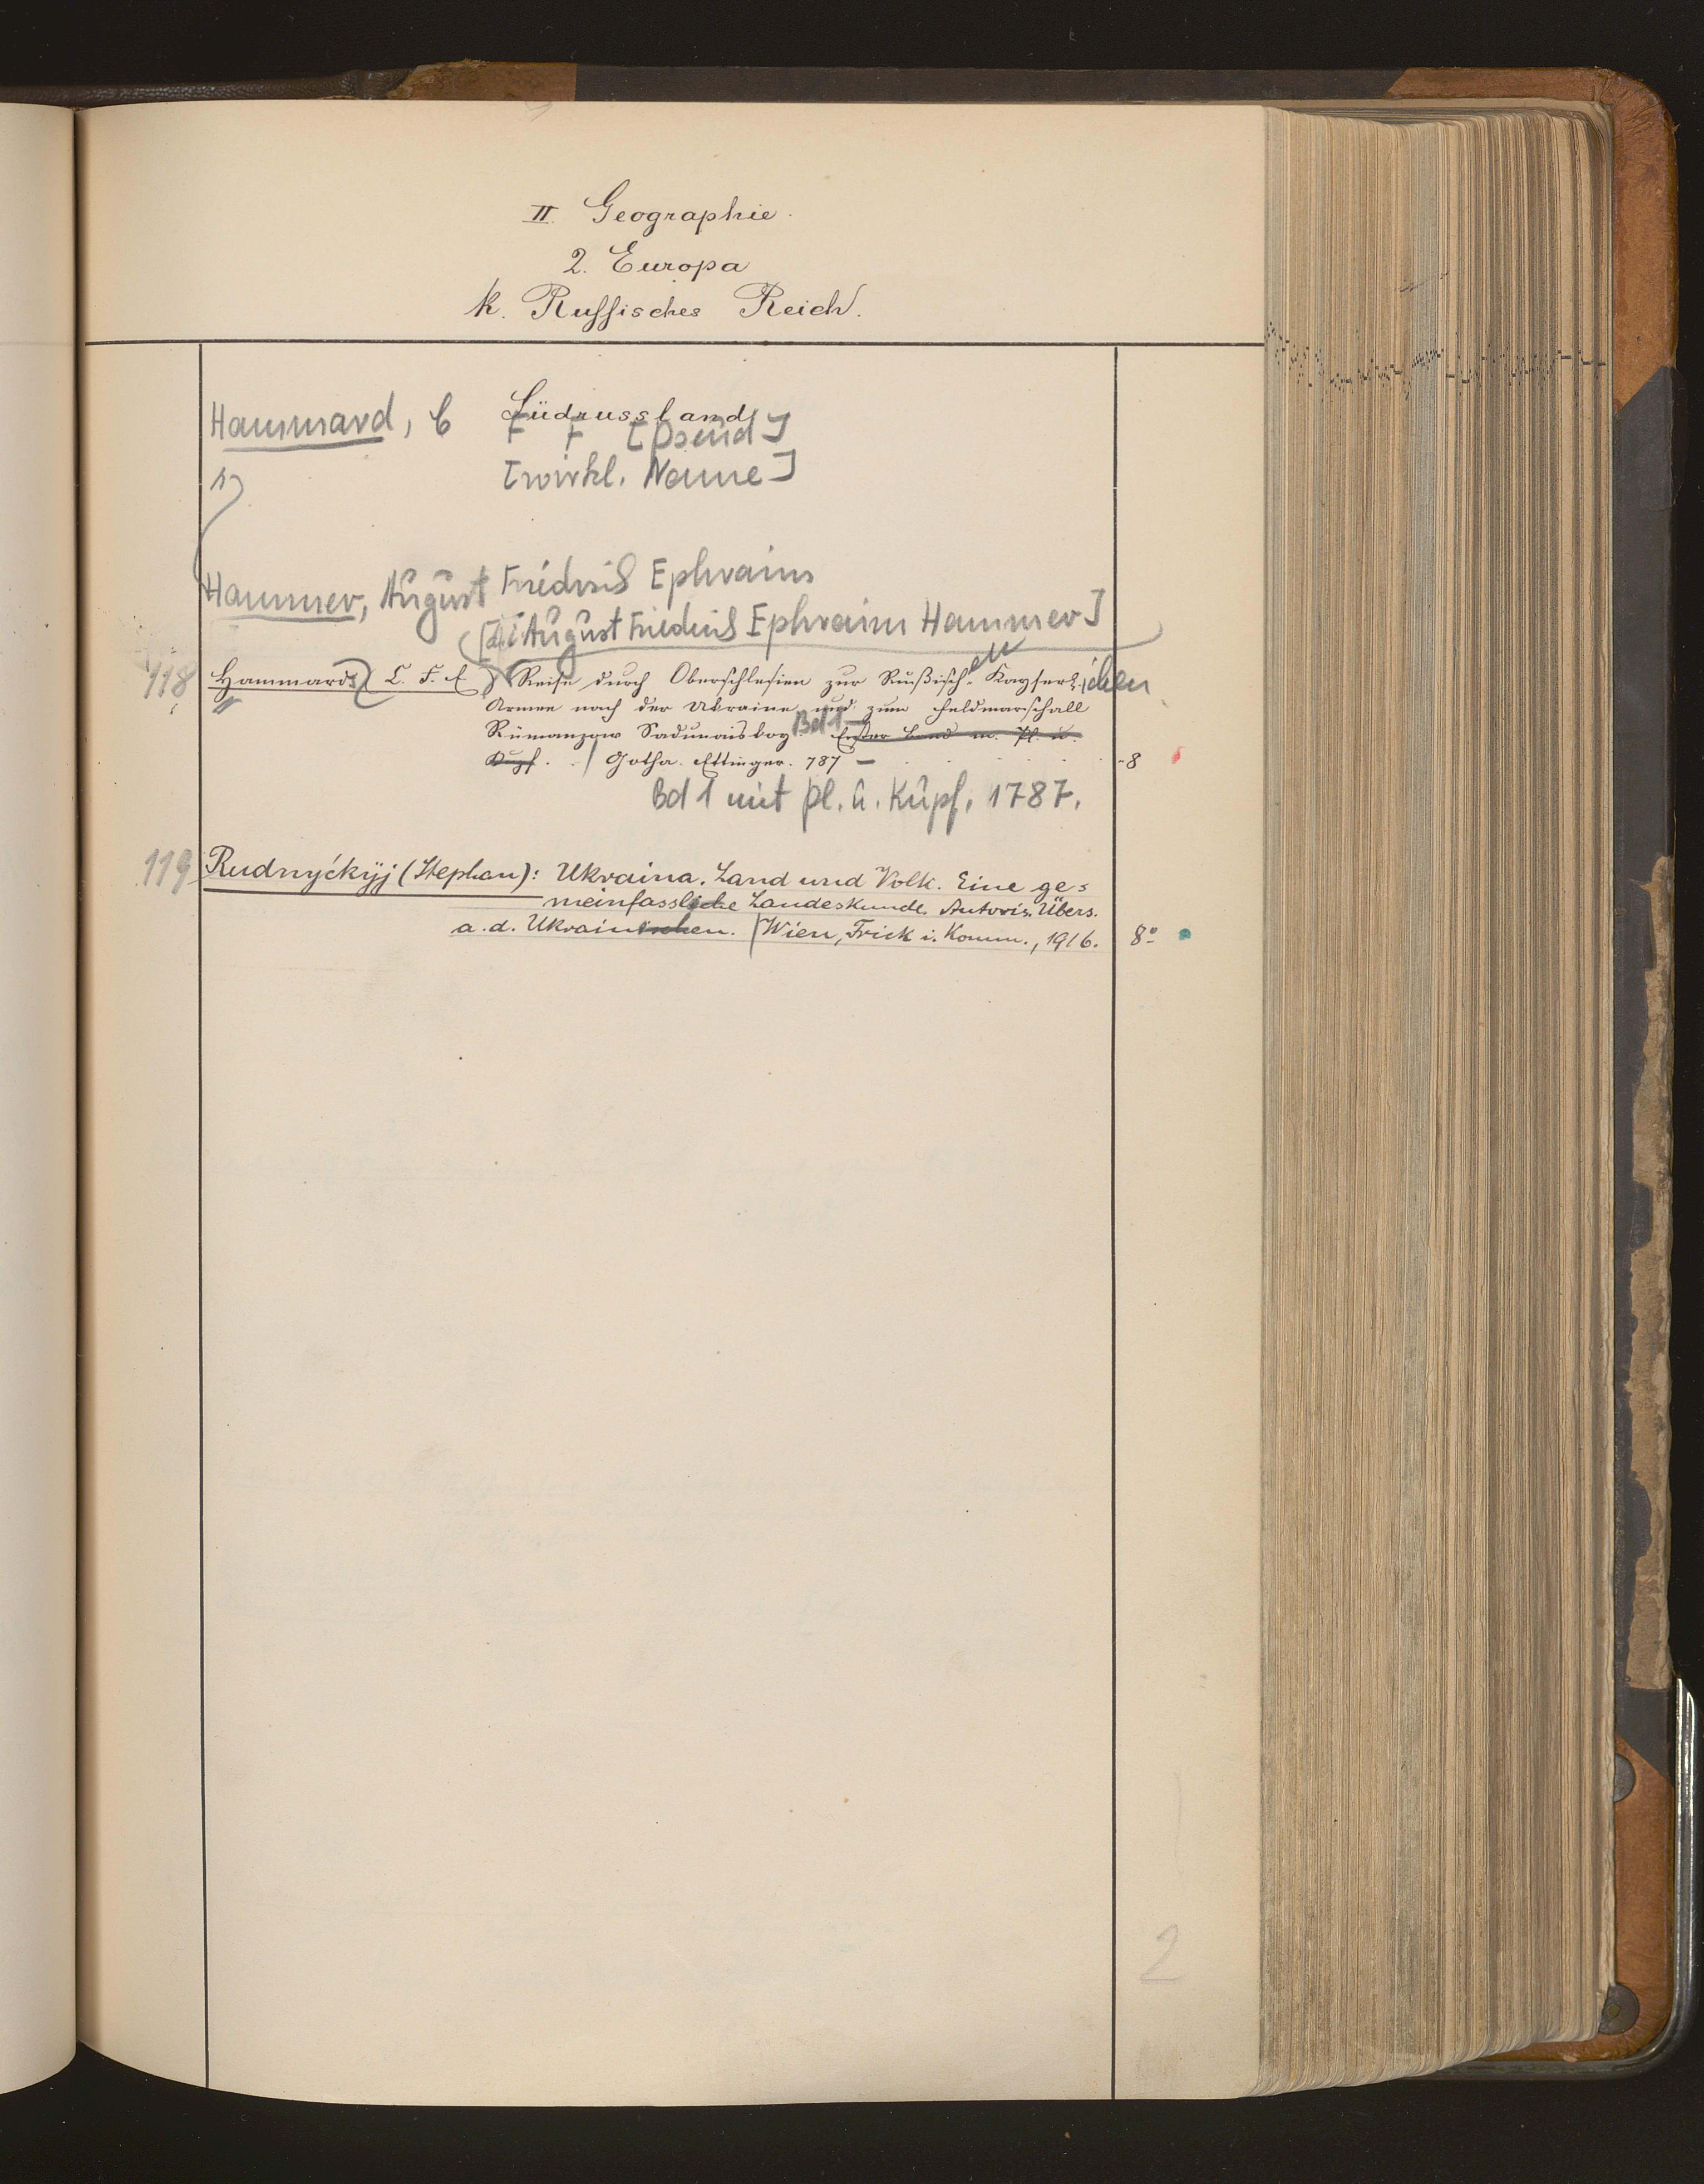 II. Geographie.
2. Europa
k. Russisches Reich.
Südrussland
Hammard, C F F [Pseud]
[wirkl. Name]
s
Hammer, August Friedrich Ephraim
[d.i. August Friedrich Ephraim Hammer]
118 Hammards C. F. E) Reise durch Oberschlesien zur Rußischen Kayserlichen
Armee nach der Ukraine und zum Feldmarschall
Rümanzow Sadunaiskoy. Bd 1 Erster Band m. Pl. u.
Kupf. / Gotha. Ettinger. 787 — 8
Bd 1 mit Pl. u. Kupf. 1787.
119 Rudnyćkyj (Stephan): Ukraina. Land und Volk. Eine ge-
meinfassliche Landeskunde. Autoris. Übers.
a. d. Ukrainischen. / Wien, Frick i. Komm., 1916. 8°
2